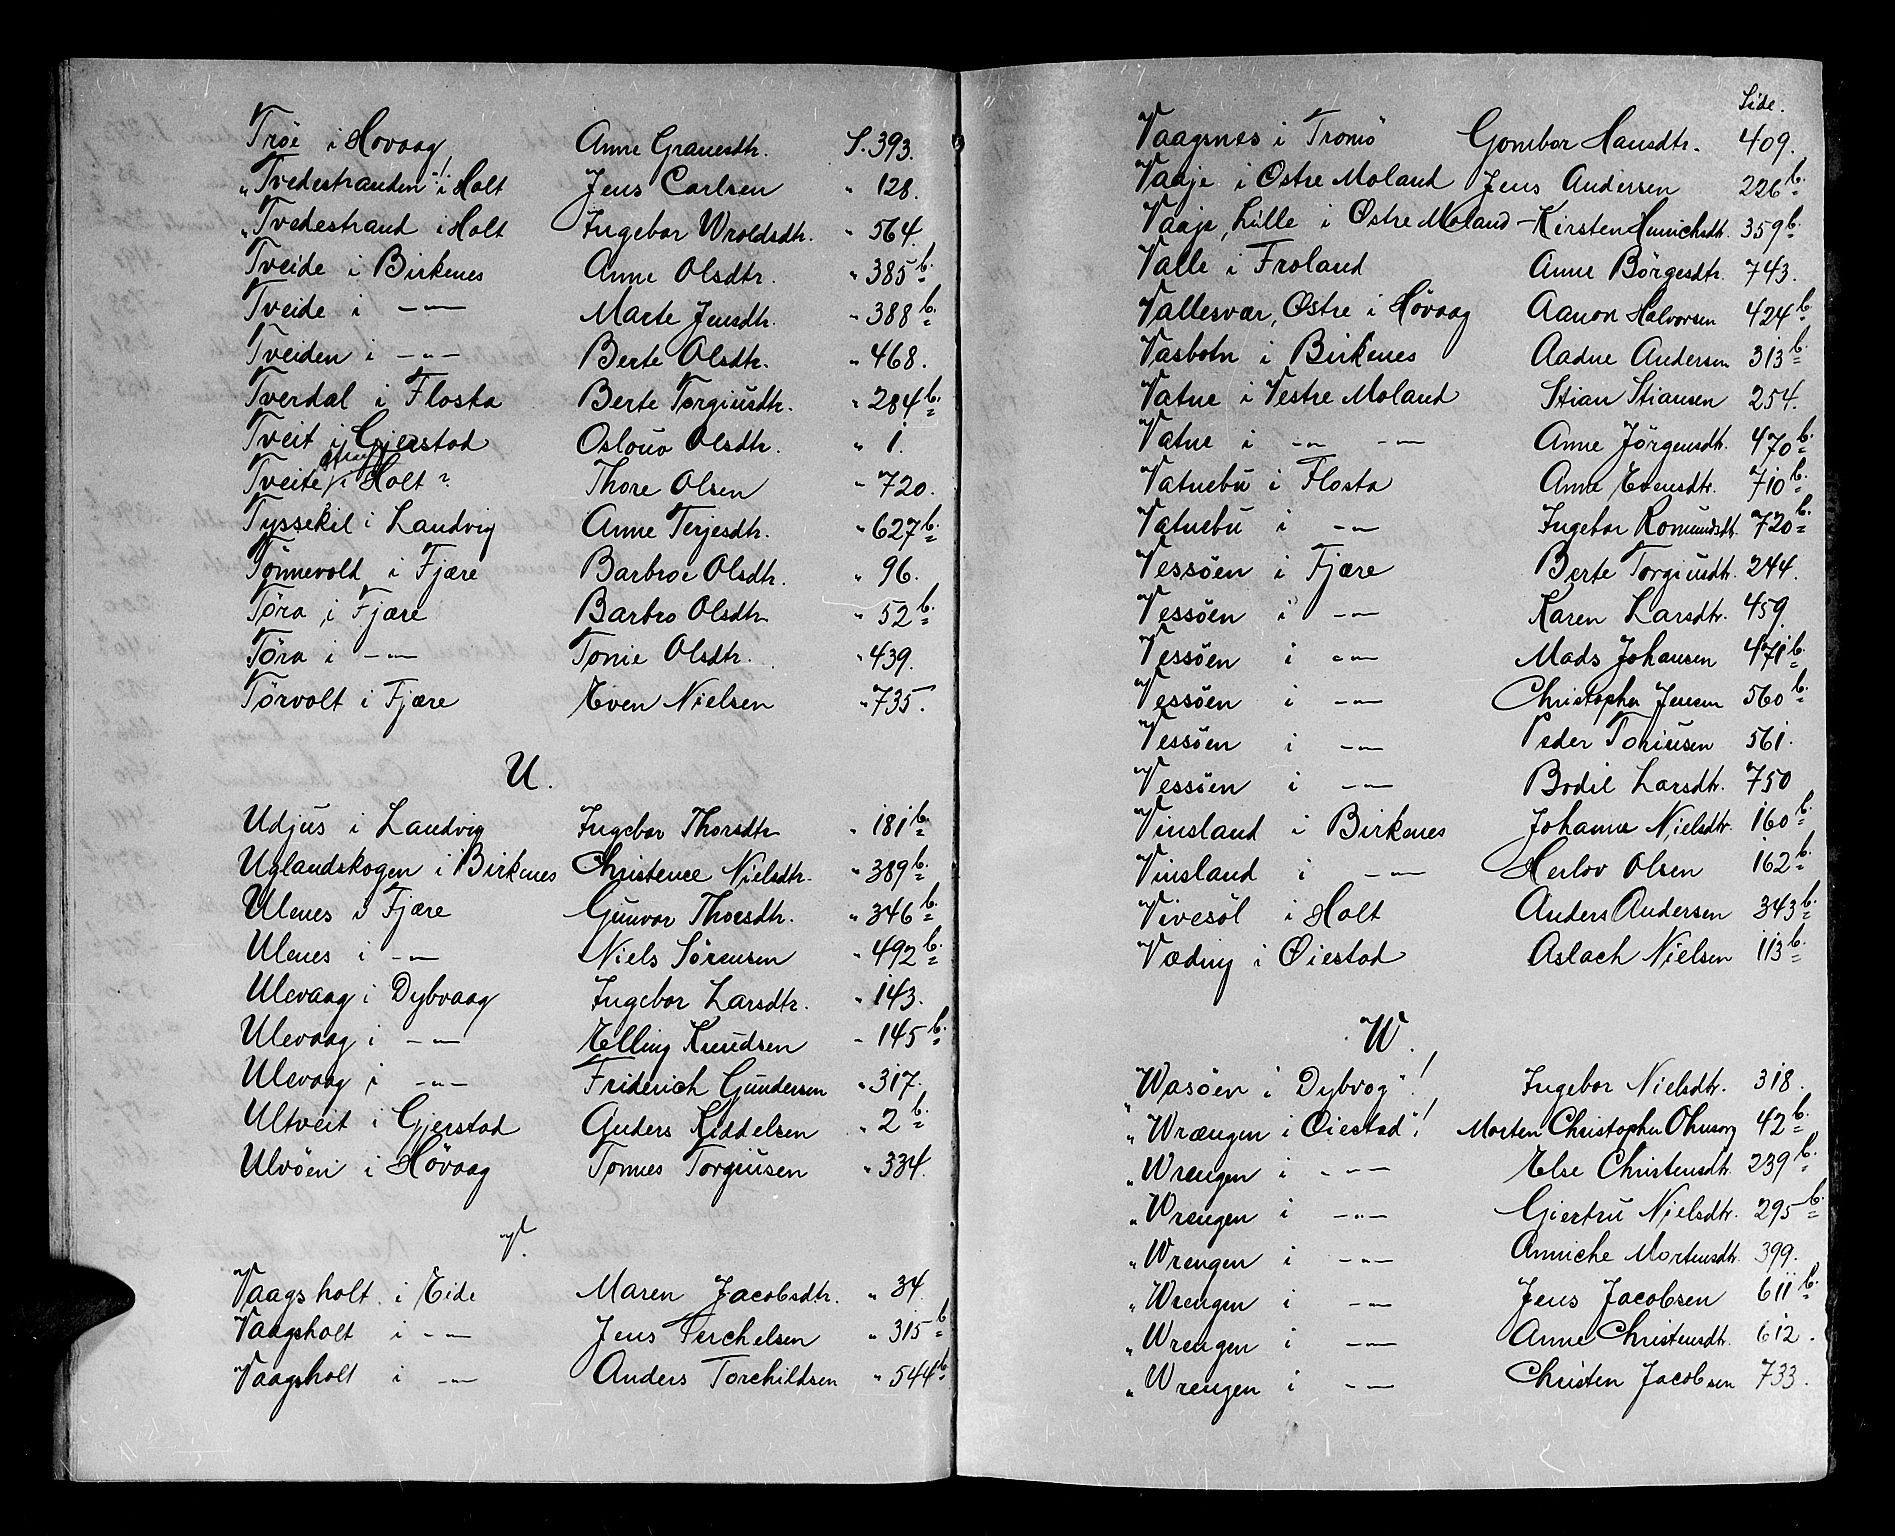 Trøe i Høvaag Anne Gravesdtr. S. 393.
"Tvedestranden"! i Holt Jens Carlsen " 128.
"Tvedestrand i Holt Ingebor Wroldsdtr. " 564.
Tveide i Birkenes Anne Olsdtr. " 385 b.
Tveide i -"- Marte Jensdtr. " 388 b.
Tveiden i -"- Berte Olsdtr. " 468.
Tverdal i Flosta Berte Torgiusdtr. " 284 b.
Tveit i Gjerstad Oslouv Olsdtr. " 1.
Tveite i Holt? Thore Olsen " 720.
Tyssekil i Landvig Anne Terjesdtr. " 627 b.
Tønnevold i Fjære Barbroe Olsdtr. " 96.
Tøra i Fjære Barbro Olsdtr. " 52 b.
Tøra i -"- Tonie Olsdtr. " 439.
Tørvolt i Fjære Even Nielsen " 735.
U.
Udjus i Landvig Ingebor Thorsdtr " 181 b.
Uglandskogen i Birkenes Christence Nielsdtr. " 389 b.
Ulenes i Fjære Gunvor Thorsdtr. " 346 b.
Ulenes i -"- Niels Sørensen " 492 b.
Ulevaag i Dybvaag Ingebor Larsdtr. " 143.
Ulevaag i -"- Elling Knudsen " 145 b.
Ulevaag i -"- Friderich Gundersen " 317.
Ultveit i Gjerstad Anders Kiddelsen " 2 b.
Ulvøen i Høvaag Tonnes Torgiusen " 334.
V.
Vaagsholt i Eide Maren Jacobsdtr. " 34.
Vaagsholt i -"- Jens Terchelsen " 315 b.
Vaagsholt i -"- Anders Torchildsen " 544 b.
Side.
Vaagsnes i Tromø Gombor Hansdtr. 409.
Vaaje i Østre Moland Jens Andersen 226 b.
Vaaje, Lille i Østre Moland - Kirsten Henrichsdtr. 359 b.
Valle i Froland Anne Børgesdtr. 743.
Vallesvær, Østre i Høvaag Aanon Halvorsen 424 b.
Vasbotn i Birkenes Aadne Andersen 313 b.
Vatne i Vestre Moland Stian Stiansen 254.
Vatne i -"- -"- Anne Jørgensdtr. 470 b.
Vatnebu i Flosta Anne Evensdtr. 710 b.
Vatnebu i -"- Ingebor Romundsdtr. 720 b.
Vessøen i Fjære Berte Torgiusdtr. 244.
Vessøen i -"- Karen Larsdtr. 459.
Vessøen i -"- Mads Johansen 471 b.
Vessøen i -"- Christopher Jensen 560 b.
Vessøen i -"- Peder Toriusen 561.
Vessøen i -"- Bodil Larsdtr. 750
Vinsland i Birkenes Johanne Nielsdtr. 160 b.
Vinsland i -"- Herlov Olsen 162 b.
Vivesøl i Holt Anders Andersen 343 b.
Væding i Øiestad Aslach Nielsen 113 b.
W.
"Wasøen i Dybvog"! Ingebor Nielsdtr. 318.
"Wrængen i Øiestad"! Morten Christopher 42 b.
"Wrengen i -"- Else Christensdtr. 239 b.
"Wrengen i -"- Giertru Nielsdtr. 295 b.
"Wrengen i -"- Anniche Mortensdtr. 399.
"Wrengen i -"- Jens Jacobsen 611 b.
"Wrengen i -"- Anne Christensdtr. 612.
"Wrengen i -"- Christen Jacobsen 733.